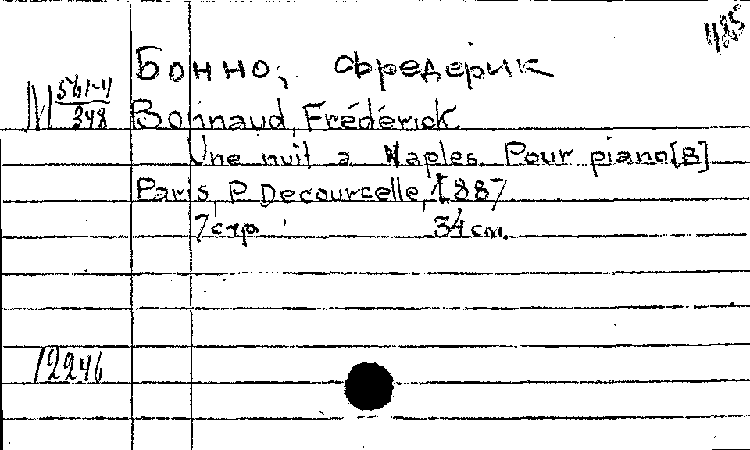 485
Бонно, Фредерик
М 561-4/348
Bonnaud, Frédérick
Une nuit a Naples. Pour piano [B]
Paris, P. Decourcelle, 1887.
7 стр. 34 cm.
12246